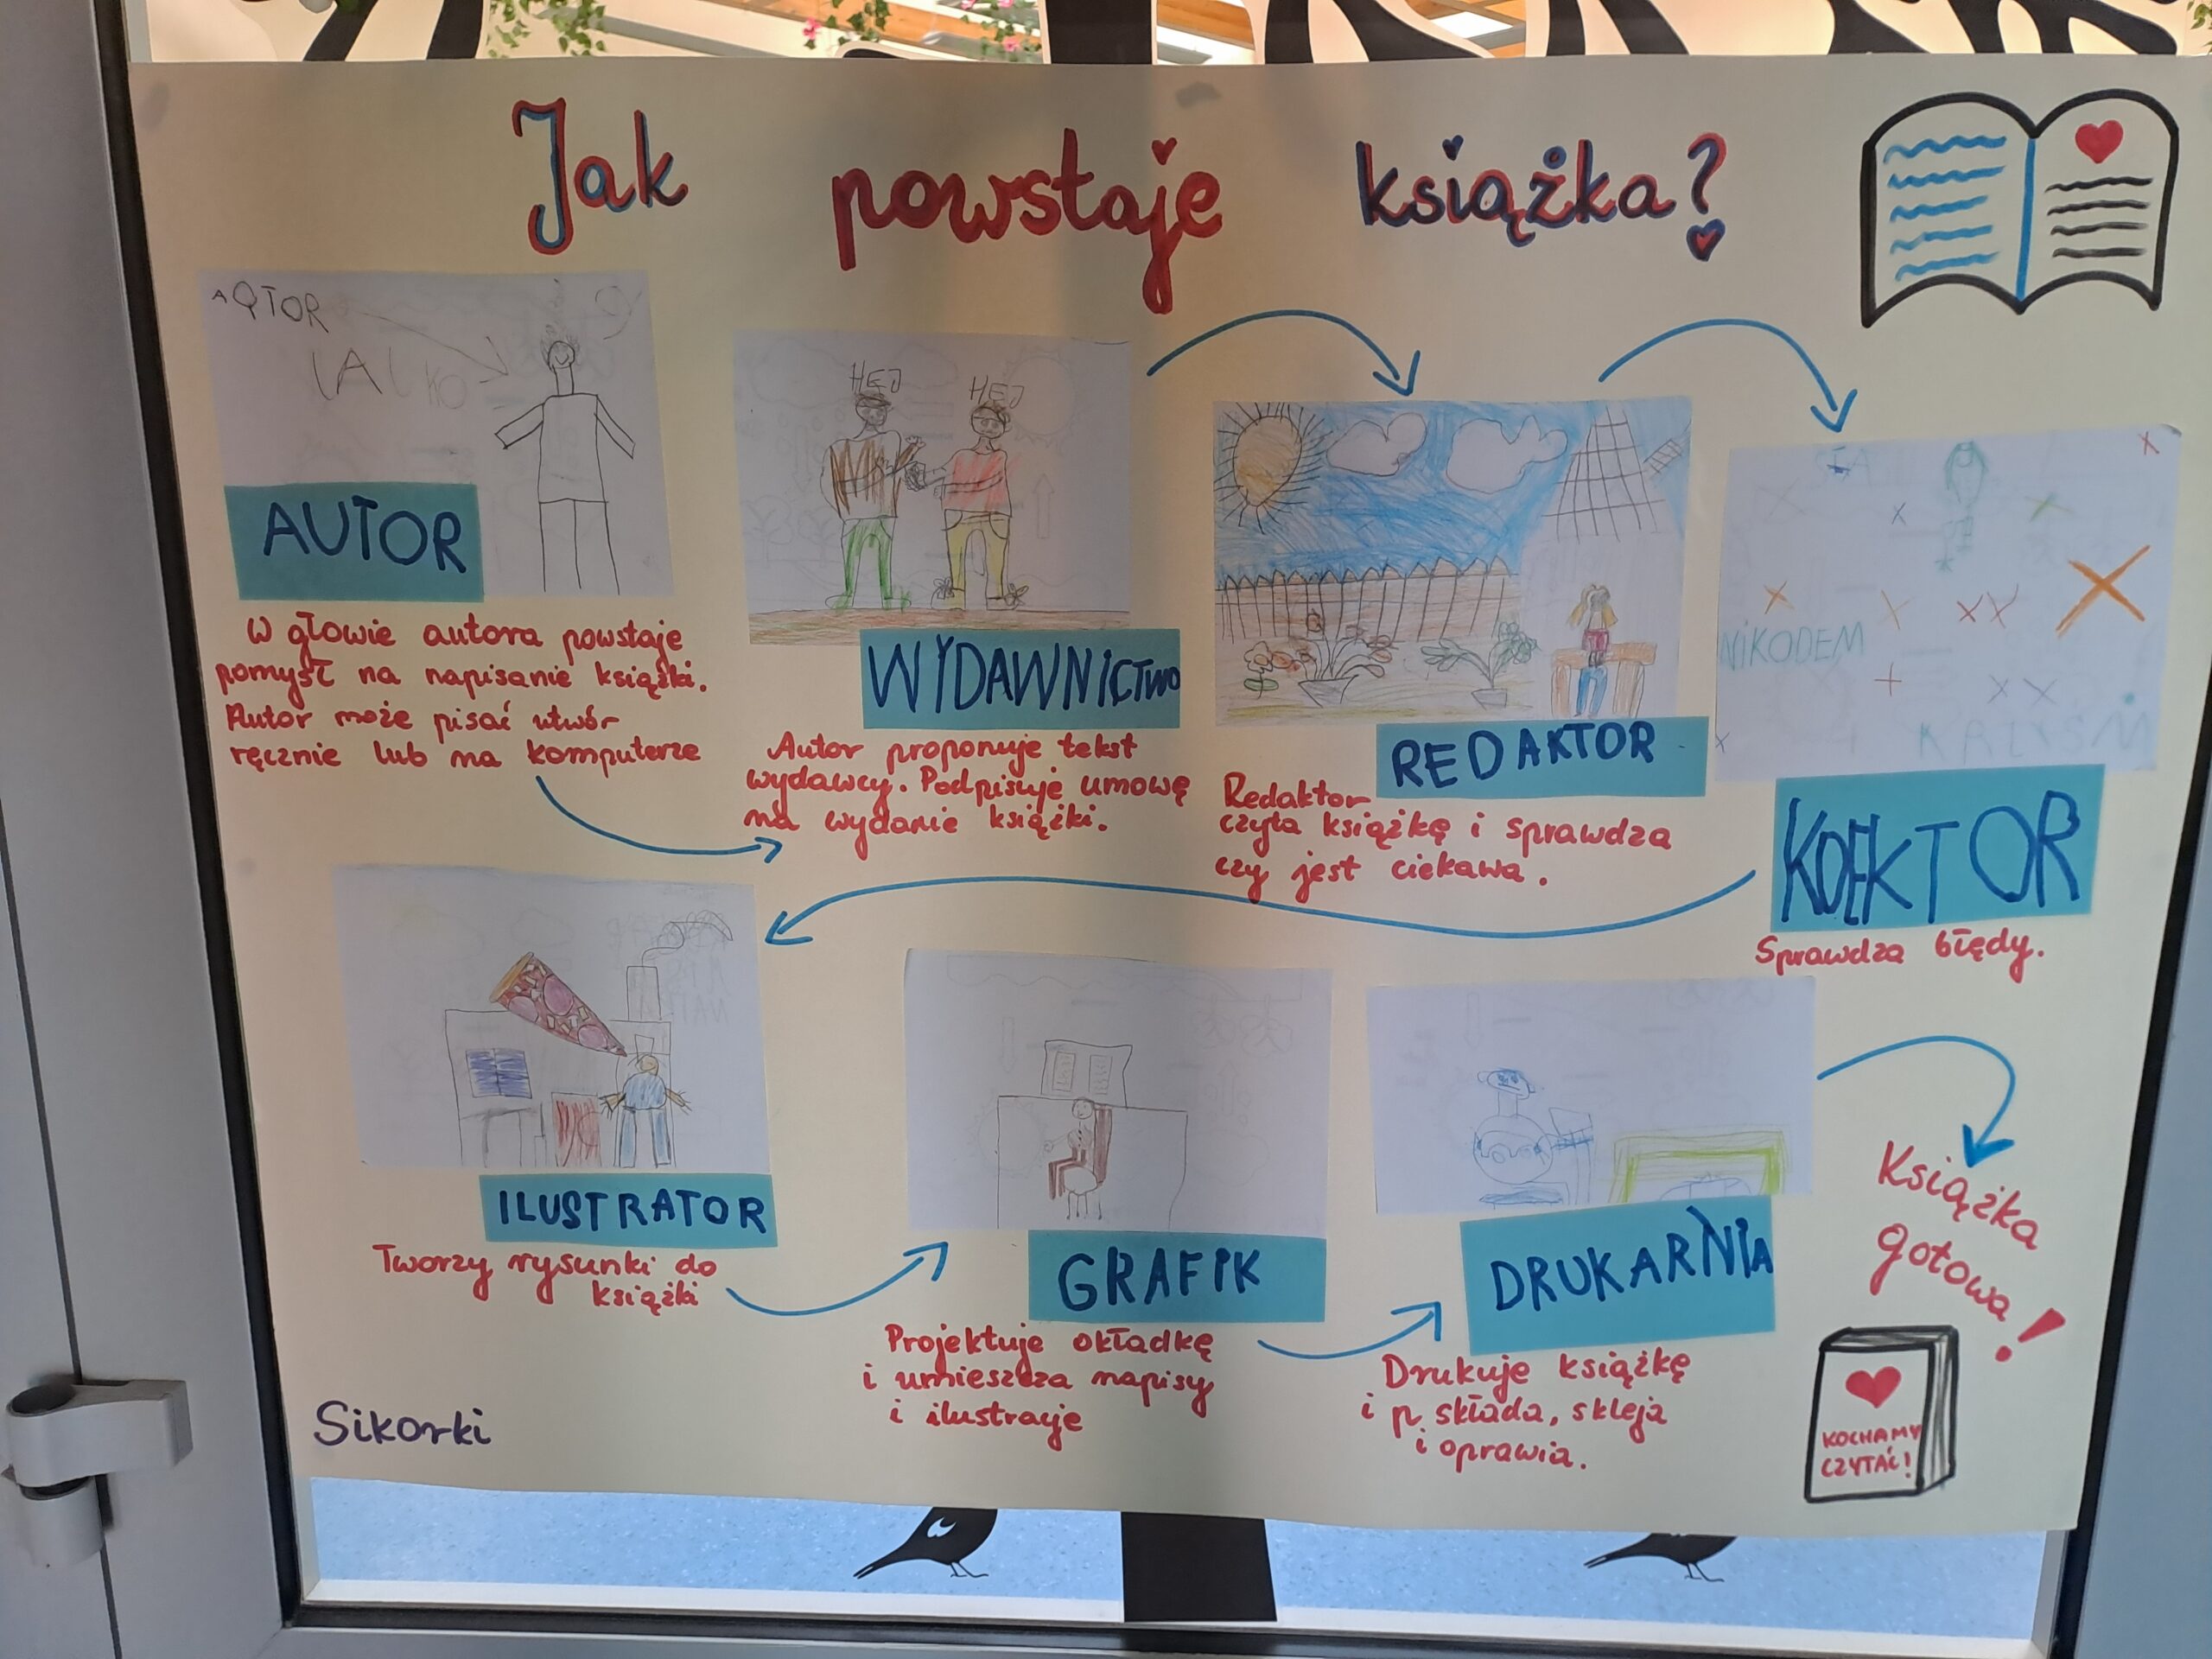 Jak powstaje książka?
AQTOR
HEJ HEJ
AUTOR
W głowie autora powstaje
pomysł na napisanie książki.
Autor może pisać utwór
ręcznie lub na komputerze
WYDAWNICTWO
Autor proponuje tekst
wydawcy. Podpisuje umowę
na wydanie książki.
REDAKTOR
Redaktor
czyta książkę i sprawdza
czy jest ciekawa.
NIKODEM
KOEKTOR
Sprawdza błędy.
ILUSTRATOR
Tworzy rysunki do
książki
GRAFIK
Projektuje okładkę
i umieszcza napisy
i ilustracje
DRUKARNIA
Drukuje książkę
i składa, skleja
i oprawia.
Książka
gotowa!
KOCHAMY
CZYTAĆ!
Sikorki